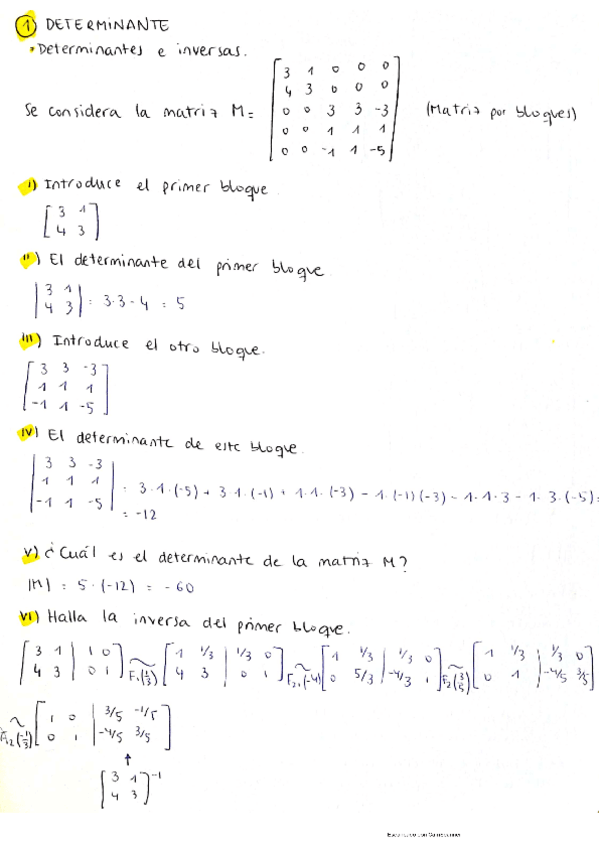 1 DETERMINANTE
• Determinantes e inversas.
Se considera la matriz M = [3 1 0 0 0
4 3 0 0 0
0 0 3 3 -3
0 0 1 1 1
0 0 -1 1 -5] (Matriz por bloques)
i) Introduce el primer bloque
[3 1
4 3]
ii) El determinante del primer bloque.
|3 1
4 3| = 3·3 - 4 = 5
iii) Introduce el otro bloque.
[3 3 -3
1 1 1
-1 1 -5]
iv) El determinante de este bloque.
|3 3 -3
1 1 1
-1 1 -5| = 3·1·(-5) + 3·1·(-1) + 1·1·(-3) - 1·(-1)(-3) - 1·1·3 - 1·3·(-5) =
= -12
v) ¿Cuál es el determinante de la matriz M?
|M| = 5·(-12) = -60
vi) Halla la inversa del primer bloque.
[3 1 | 1 0
4 3 | 0 1] ~ F1(1/3) [1 1/3 | 1/3 0
4 3 | 0 1] ~ F21(-4) [1 1/3 | 1/3 0
0 5/3 | -4/3 1] ~ F2(3/5) [1 1/3 | 1/3 0
0 1 | -4/5 3/5]
~ F12(-1/3) [1 0 | 3/5 -1/5
0 1 | -4/5 3/5]
↑
[3 1
4 3]-1